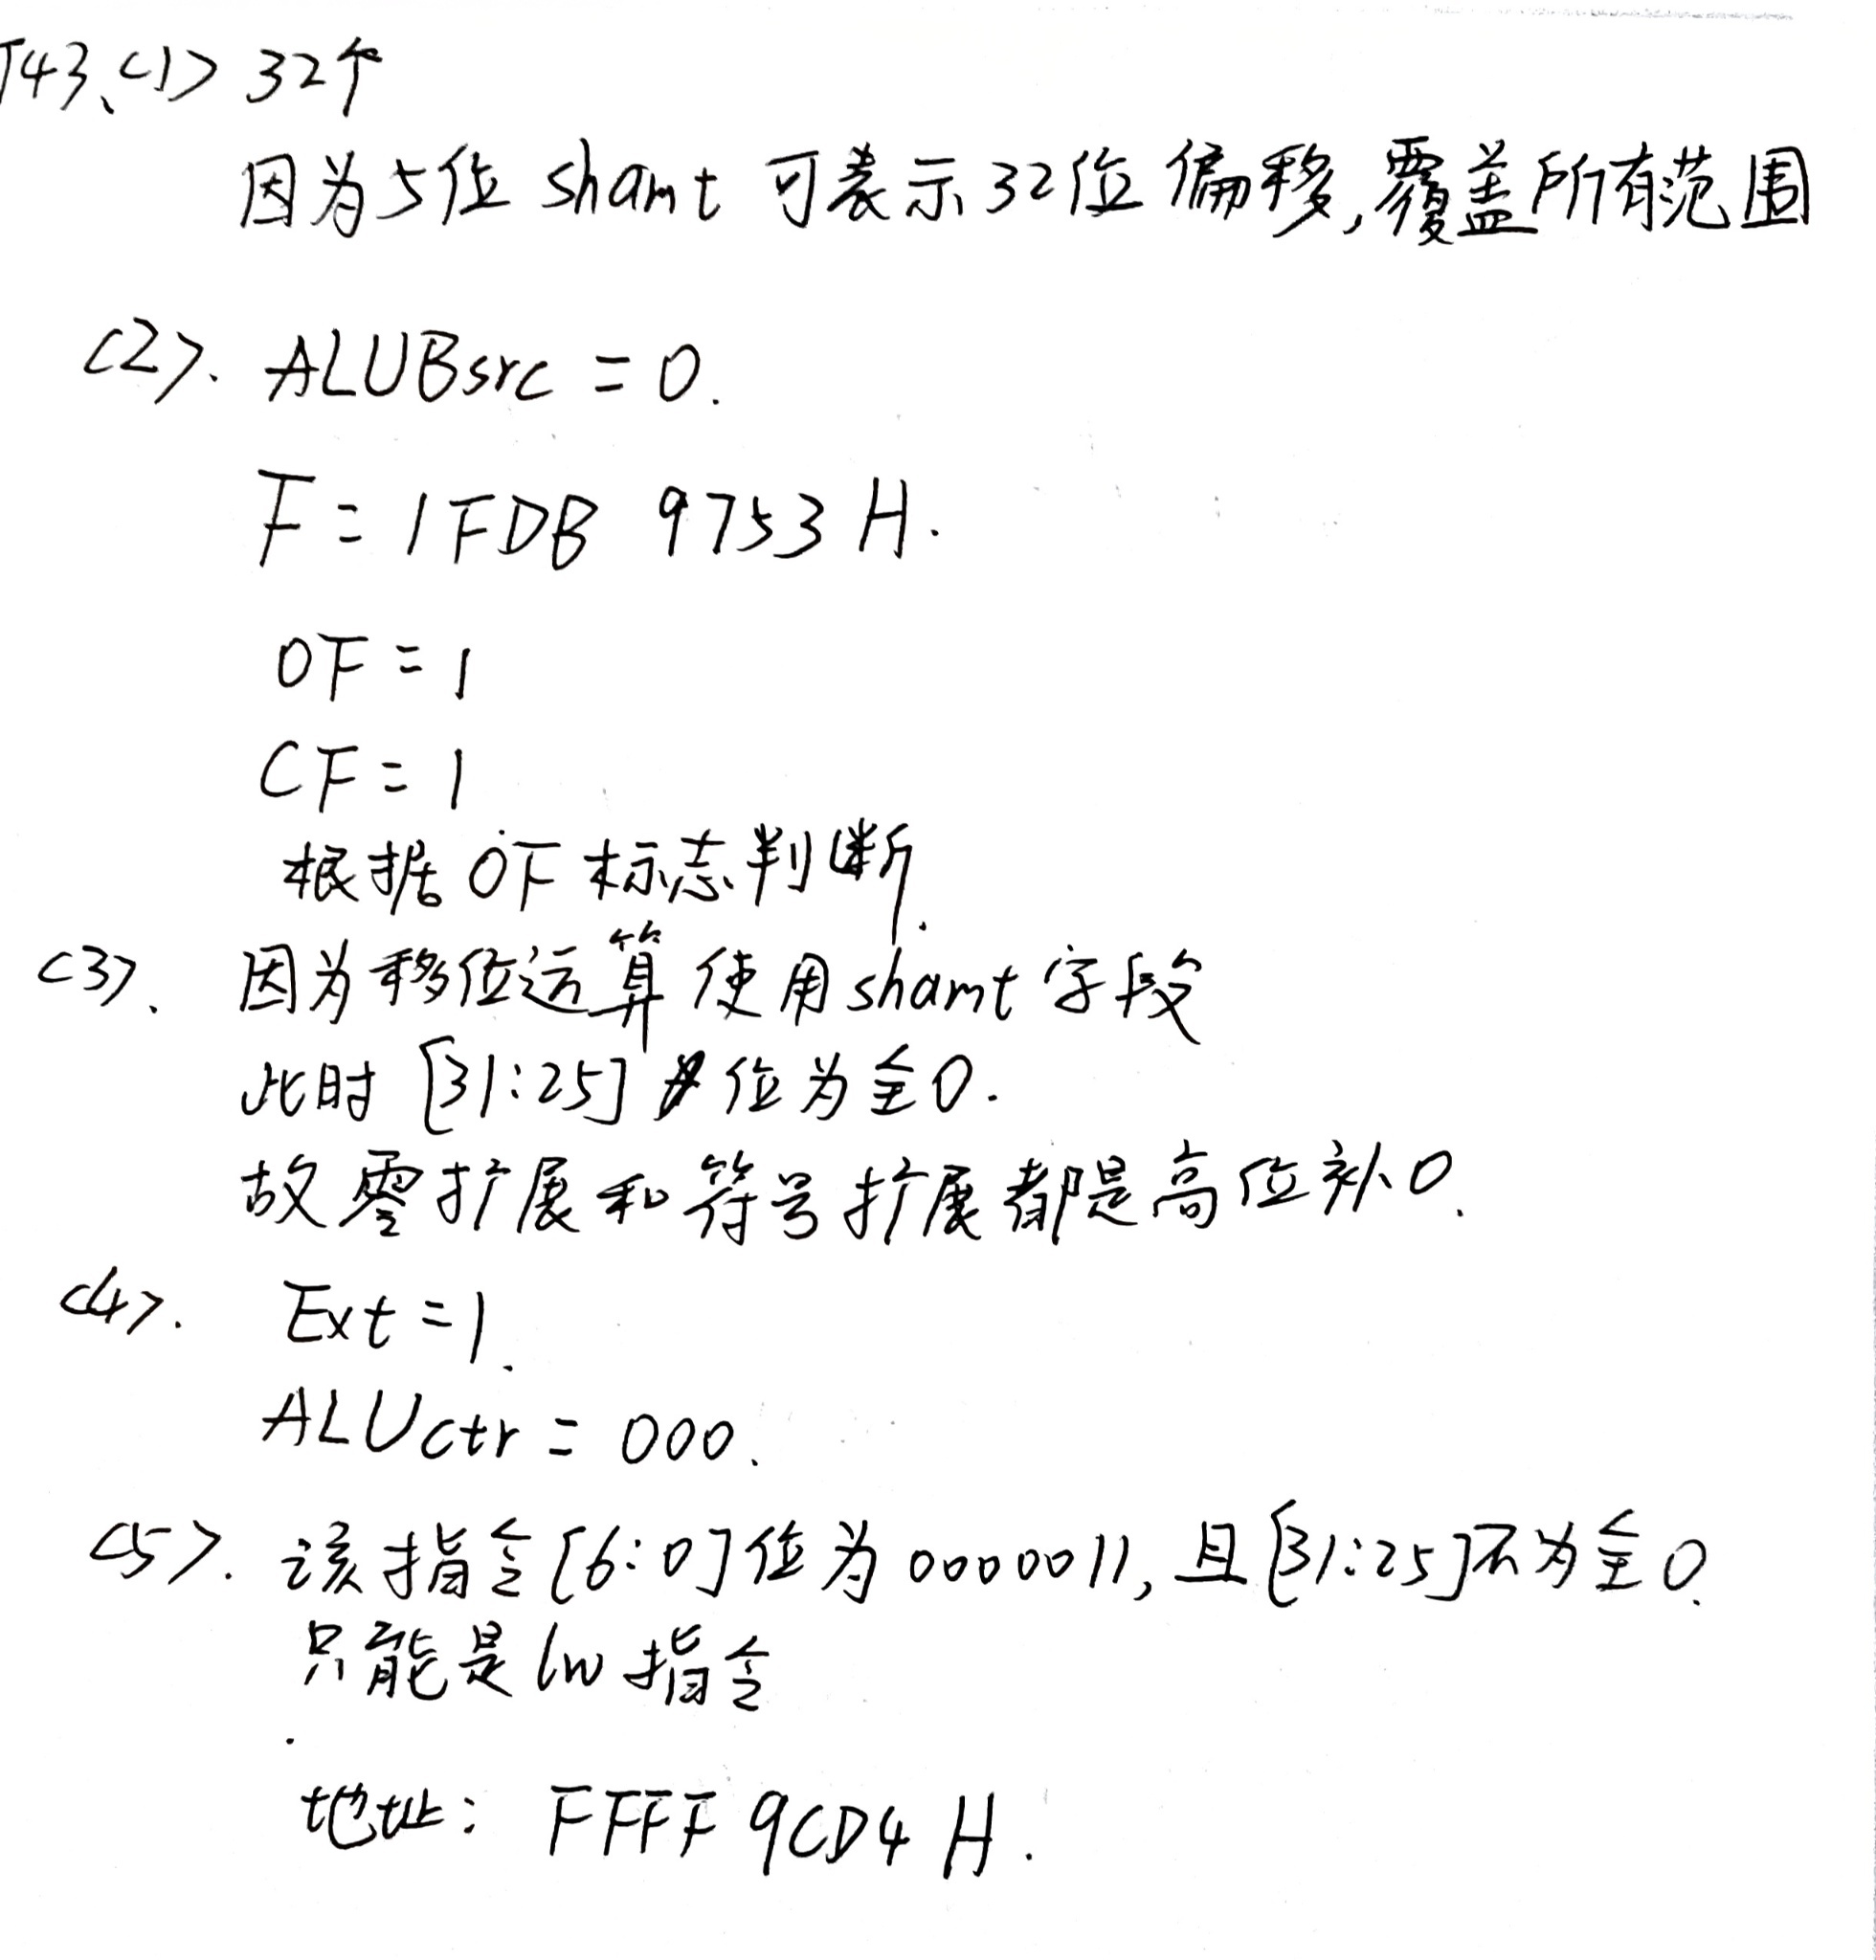 T43、<1> 32个
因为5位 shamt 可表示32位偏移,覆盖所有范围
<2>. ALUBsrc = 0.
F = 1FDB 9753 H.
OF = 1
CF = 1
根据 OF 标志判断.
<3>. 因为移位运算使用shamt字段
此时 [31:25] 位为全0.
故零扩展和符号扩展都是高位补0.
<4>. Ext = 1.
ALUctr = 000.
<5>. 该指令[6:0]位为0000011,且[31:25]不为全0.
只能是lw指令
地址: FFFF 9CD4 H.